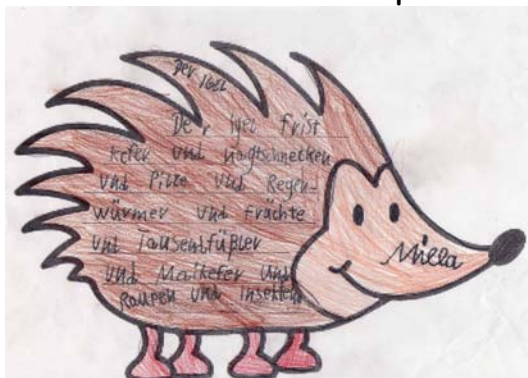 Der IGEL
Der igel frist
kefer und nagtschnecken
und Pilze und Regen-
würmer und früchte
und Tausentfüßler
und Maikefer und
Raupen und insekten
Milla